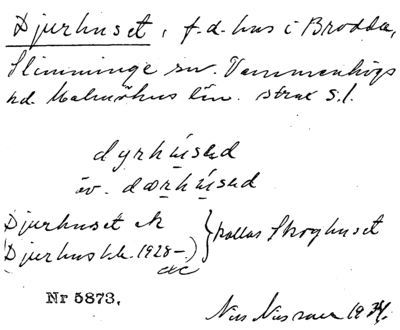 Djurhuset, f.d. hus i Brodda,
Slimminge sn. Vemmenhögs
hd. Malmöhus län. strax s.l.
dyrhúsəd
äv. dærhúsəd
Djurhuset ek
(Djurhus 1928–) } kallas Skoghuset
Nr 5873.
Nils 1934.